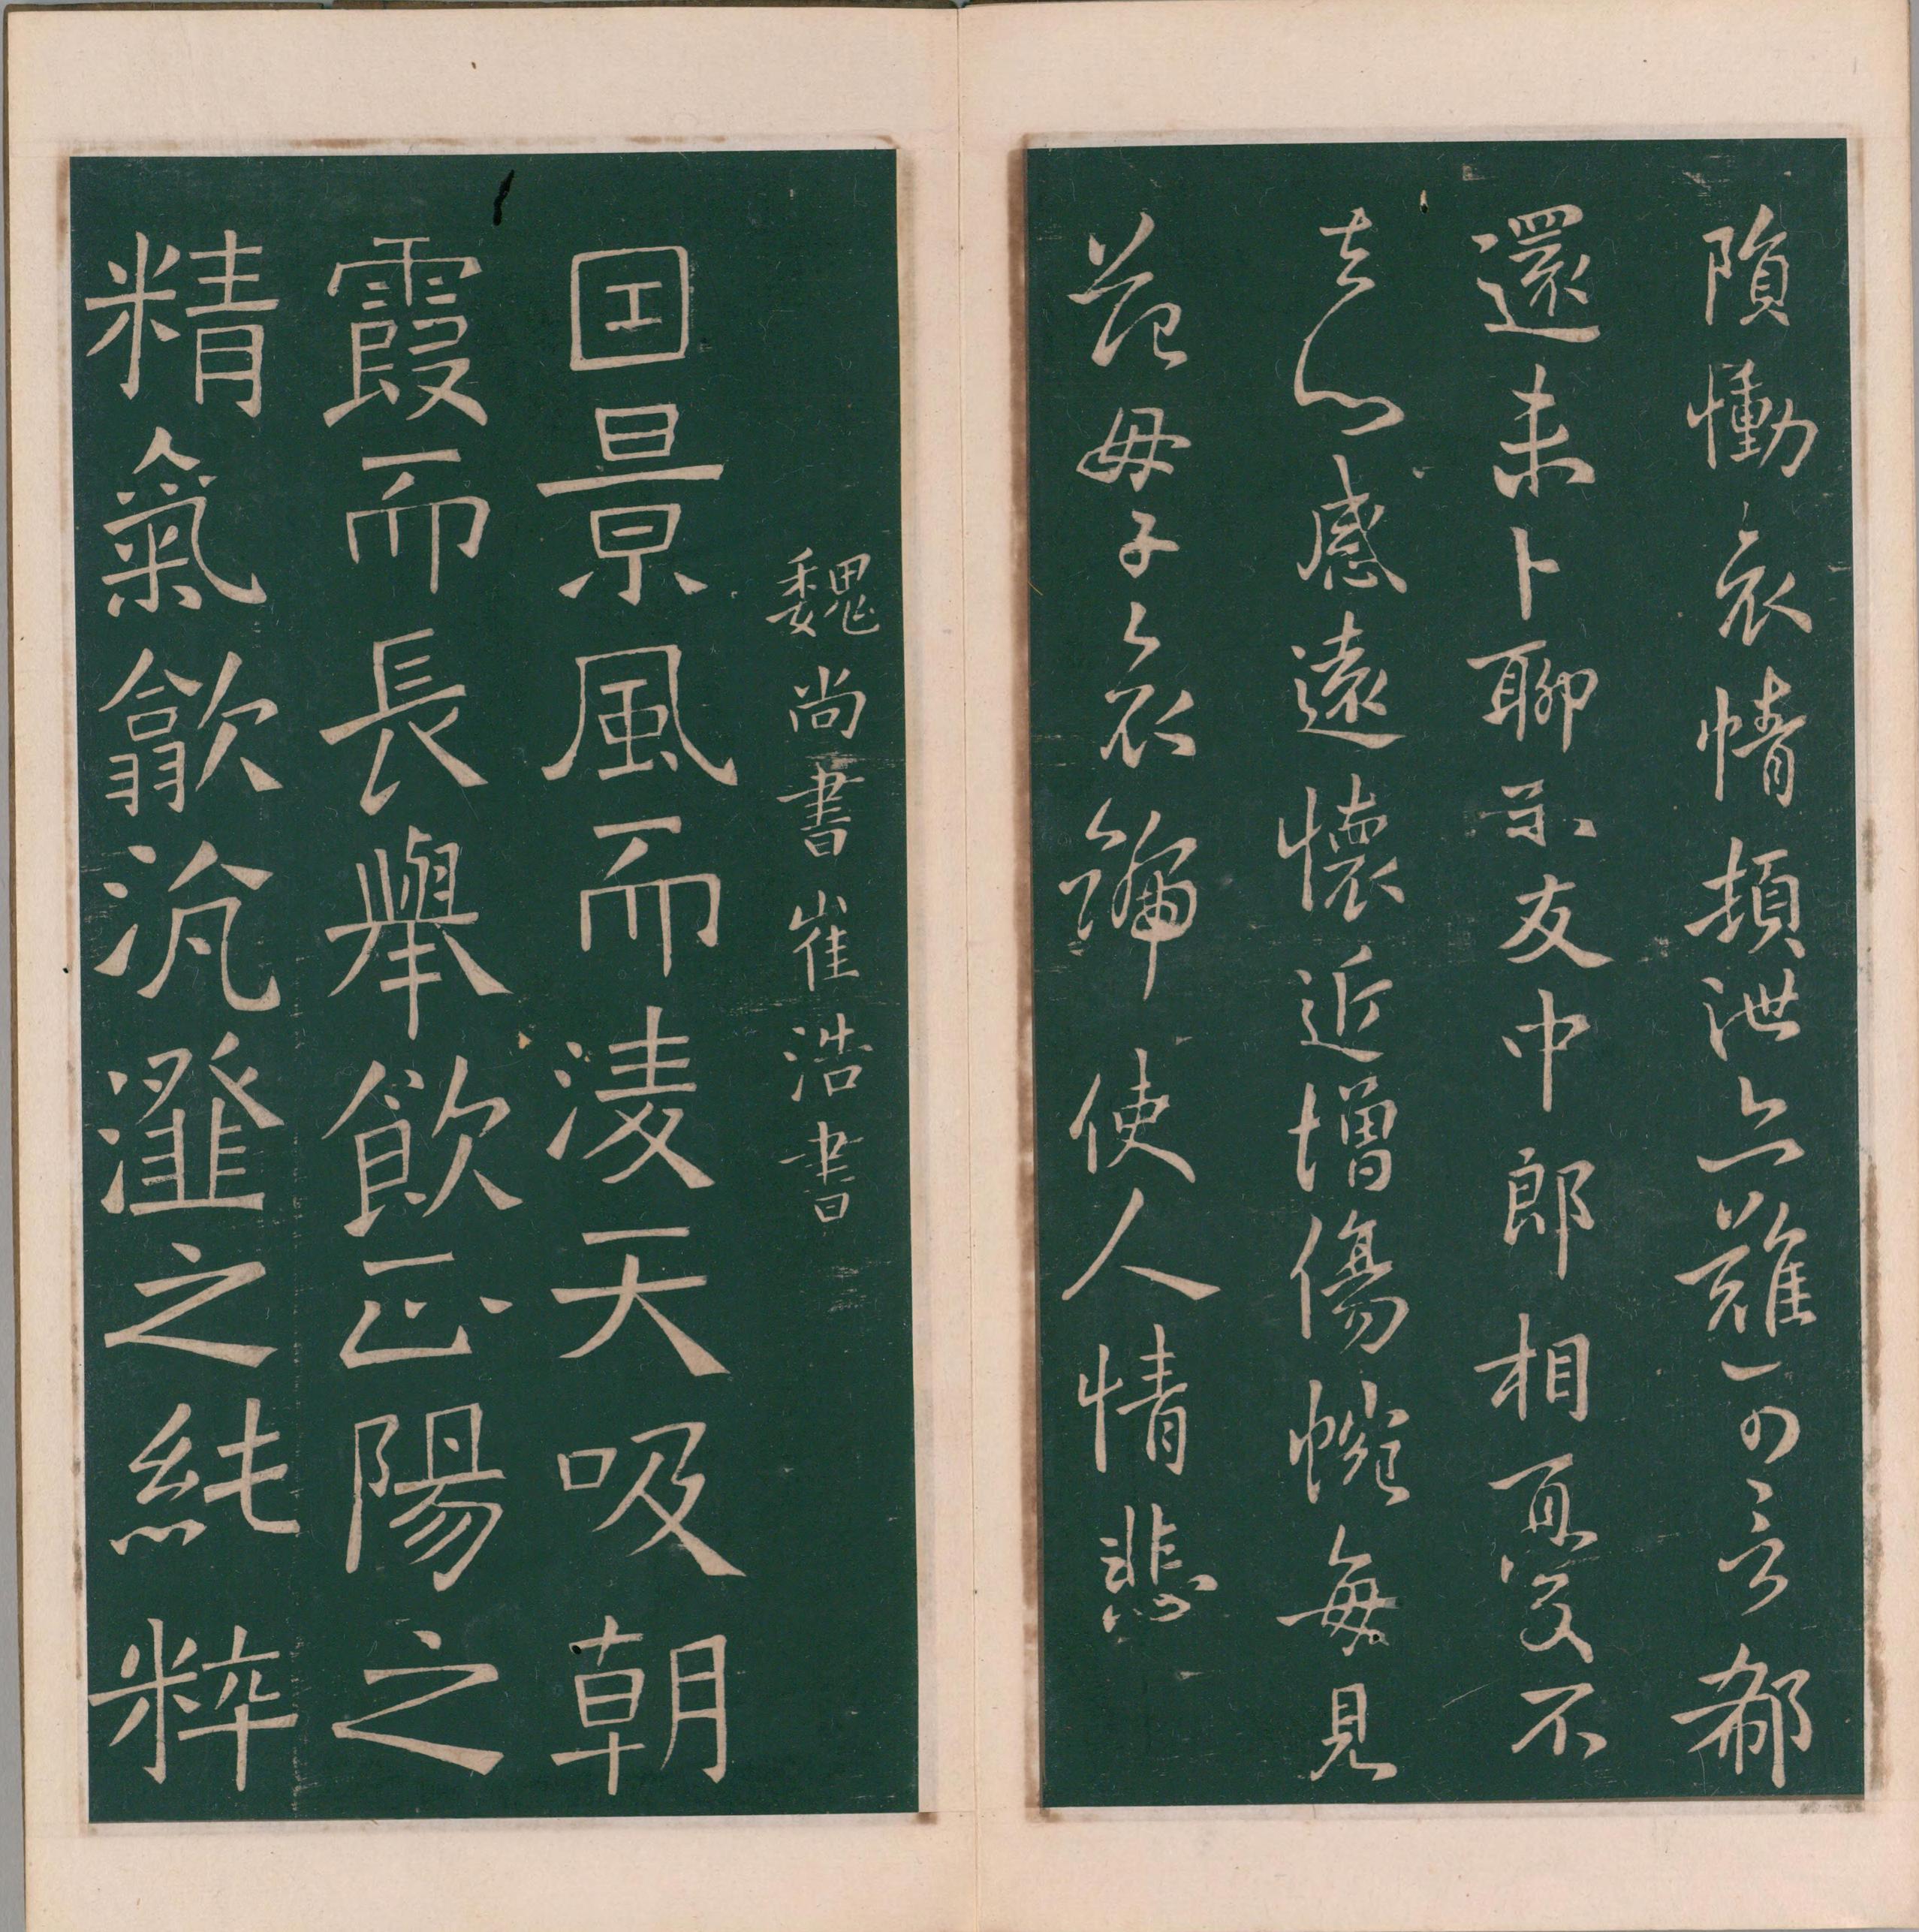 隕慟哀情頻泄亦難可言郗
還未卜聊示友中郎相愛不
去心感遠懷近增傷惋每見
范母子之哀號使人情悲
魏尚書崔浩書
景風而淩天吸朝
霞而長舉飲正陽之
精氣歙沆瀣之純粹